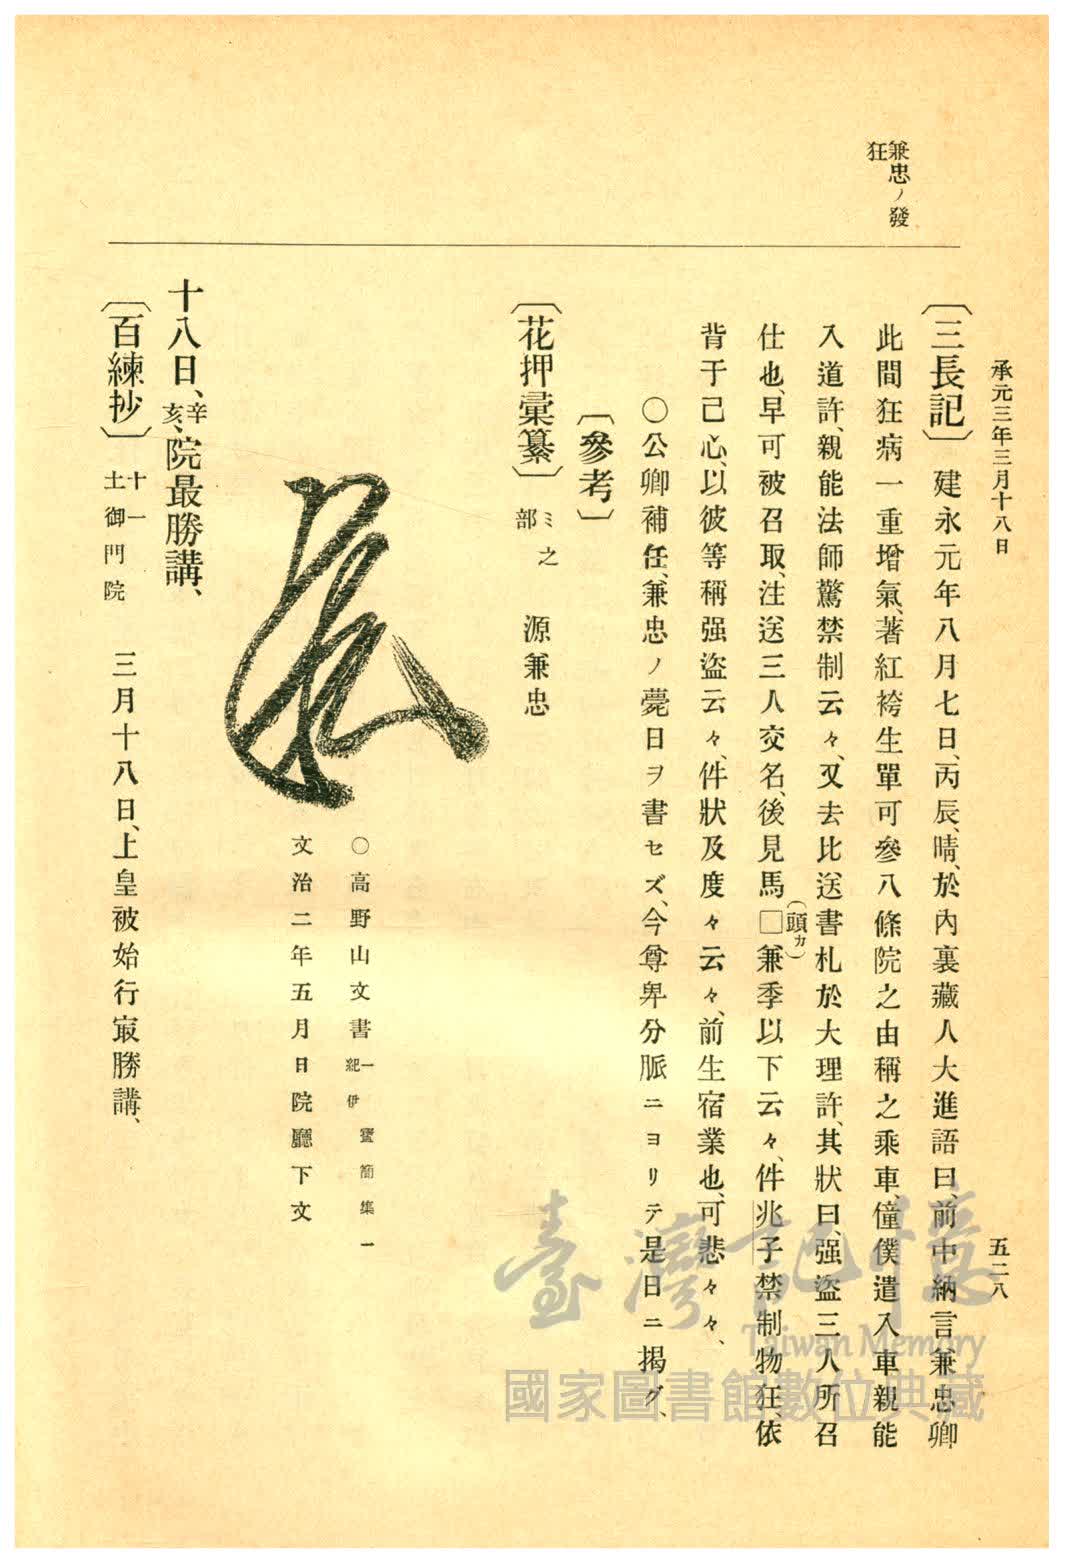 承元三年三月十八日
五二八
兼忠ノ發
狂
〔三長記〕 建永元年八月七日、丙辰、晴、於內裏藏人大進語曰、前中納言兼忠卿
此間狂病一重增氣、著紅袴生單可參八條院之由稱之乘車、僮僕遣入車親能
入道許、親能法師驚禁制云々、又去比送書札於大理許、其狀曰、强盜三人所召
仕也、早可被召取、注送三人交名、後見馬□(頭カ)兼季以下云々、件兆子禁制物狂、依
背于己心、以彼等稱强盜云々、件狀及度々云々、前生宿業也、可悲々々、
○公卿補任、兼忠ノ薨日ヲ書セズ、今尊卑分脈ニヨリテ是日ニ揭グ、
〔參考〕
〔花押彙纂〕 ミ之部 源兼忠
○高野山文書 一 紀伊 寶簡集一
文治二年五月日院廳下文
十八日、辛亥、院最勝講、
〔百練抄〕 十一 土御門院 三月十八日、上皇被始行㝡勝講、
臺灣記憶
Taiwan Memory
國家圖書館數位典藏